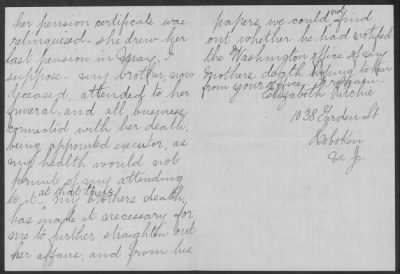 her pension certificate was
relinquised - she drew her
last pension in May, I
suppose - my brother, now
deceased, attended to her
funeral, and all business
connected with her death,
being appointed executor, as
my health would not
permit of my attending
to it at that time. My brothers death,
has made it necessary for
me to further straighten out
her affairs, and from his
papers, we could not find
out whether he had notified
the Washington office of my
mothers death hoping to hear
from your office I remain
Elizabeth Ritchie
1038 Garden St
Hoboken
N J